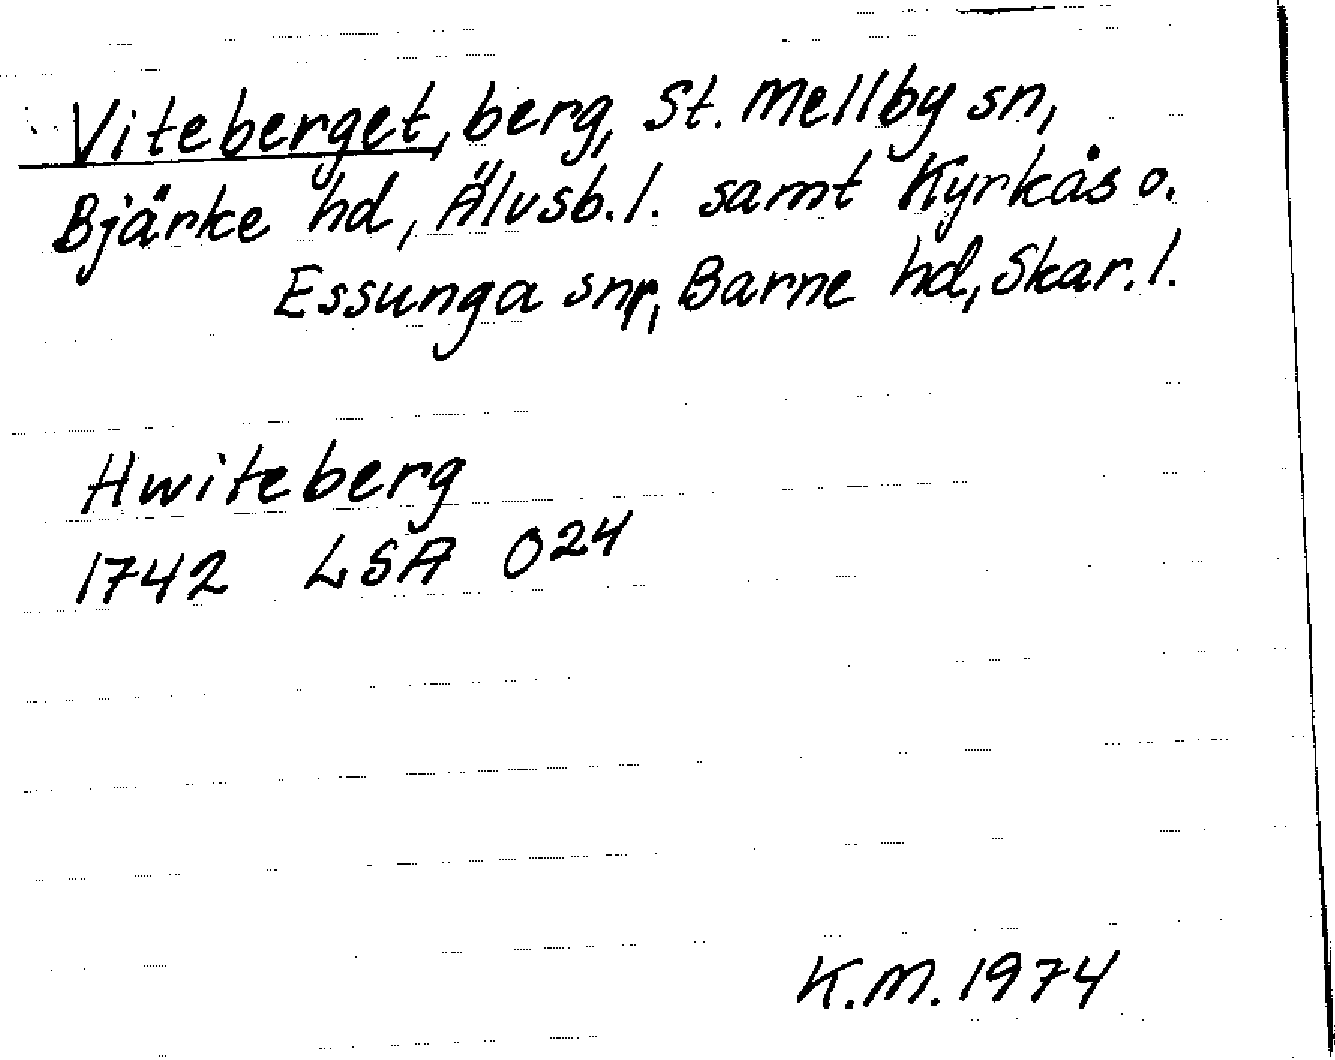 Viteberget, berg, St. Mellby sn,
Bjärke hd, Älvsb. l. samt Kyrkås o.
Essunga snr, Barne hd, Skar. l.
Hwiteberg
1742 LSA O24
K.M. 1974